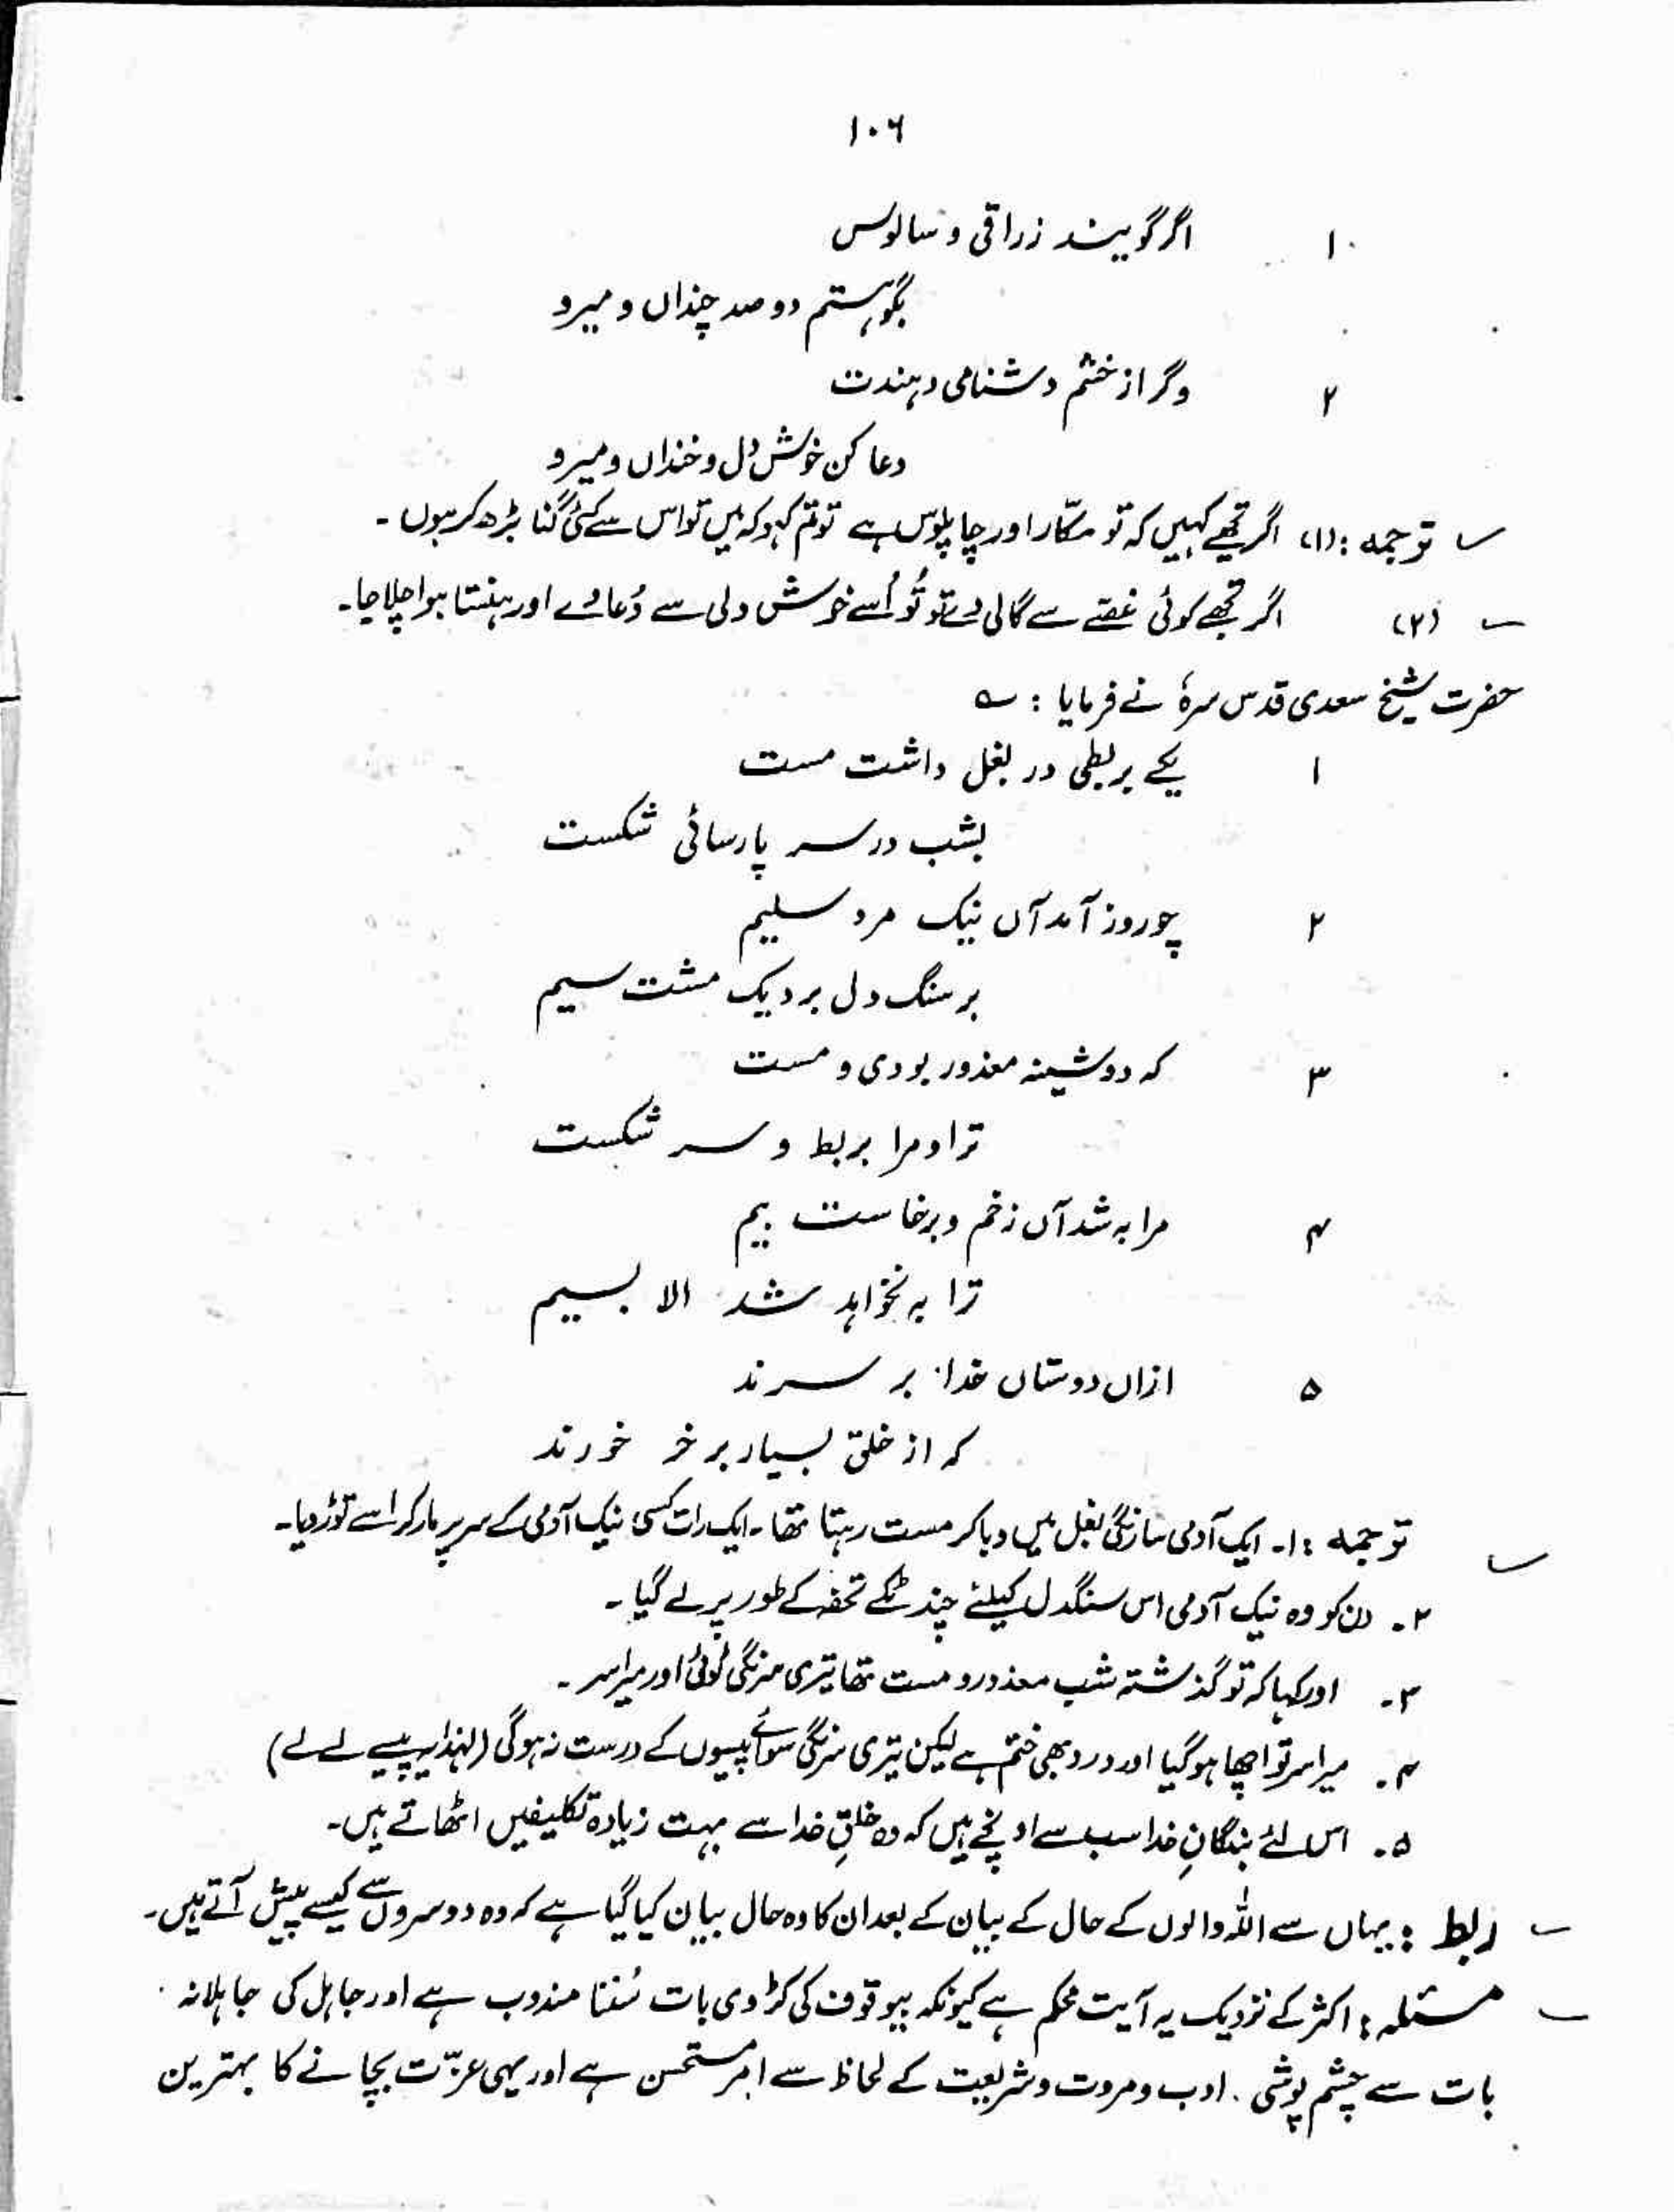 ۱۰۶
۱ اگر گویند زراقی و سالوس
بگو ہستم دو صد چنداں و میرو
۲ وگر از خشم دشنامی دہندت
دعا کن خوش دل و خنداں و میرو
ترجمہ : (۱) اگر تجھے کہیں کہ تو مکّار اور چاپلوس ہے تو تم کہو کہ میں تو اس سے کئی گنا بڑھ کر ہوں ۔
(۲) اگر تجھے کوئی غصّے سے گالی دے تو تُو اُسے خوش دلی سے دُعا دے اور ہنستا ہوا چلا جا۔
حضرت شیخ سعدی قدس سرہٗ نے فرمایا : ؎
۱ یکے بربطی در بغل داشت مست
بشب در سر پارسائی شکست
۲ چو روز آمد آں نیک مرد سلیم
بر سنگ دل برد یک مشت سیم
۳ کہ دوشینہ معذور بودی و مست
ترا و مرا بربط و سر شکست
۴ مرا بہ شد آں زخم و برخاست بیم
ترا بہ نخواہد شد الا بسیم
۵ ازاں دوستاں خدا بر سرند
کہ از خلق بسیار بر خر خورند
ترجمہ : ۱۔ ایک آدمی سارنگی بغل میں دبا کر مست رہتا تھا ۔ ایک رات کسی نیک آدمی کے سر پر مار کر اسے توڑ دیا۔
۲۔ دن کو وہ نیک آدمی اس سنگدل کیلئے چند ٹکے تحفہ کے طور پر لے گیا ۔
۳۔ اور کہا کہ تو گذشتہ شب معذور و مست تھا تیری سرنگی ٹوٹی اور میرا سر ۔
۴۔ میرا سر تو اچھا ہو گیا اور درد بھی ختم ہے لیکن تیری سرنگی سوائے پیسوں کے درست نہ ہوگی (لہٰذا یہ پیسے لے لے)
۵۔ اس لئے بندگانِ خدا سب سے اونچے ہیں کہ وہ خلقِ خدا سے بہت زیادہ تکلیفیں اٹھاتے ہیں۔
ربط : یہاں سے اللہ والوں کے حال کے بیان کے بعد ان کا وہ حال بیان کیا گیا ہے کہ وہ دوسروں سے کیسے پیش آتے ہیں۔
مسئلہ : اکثر کے نزدیک یہ آیت محکم ہے کیونکہ بیوقوف کی کڑوی بات سُننا مندوب ہے اور جاہل کی جاہلانہ
بات سے چشم پوشی . ادب و مروت و شریعت کے لحاظ سے امر مستحسن ہے اور یہی عزّت بچانے کا بہترین